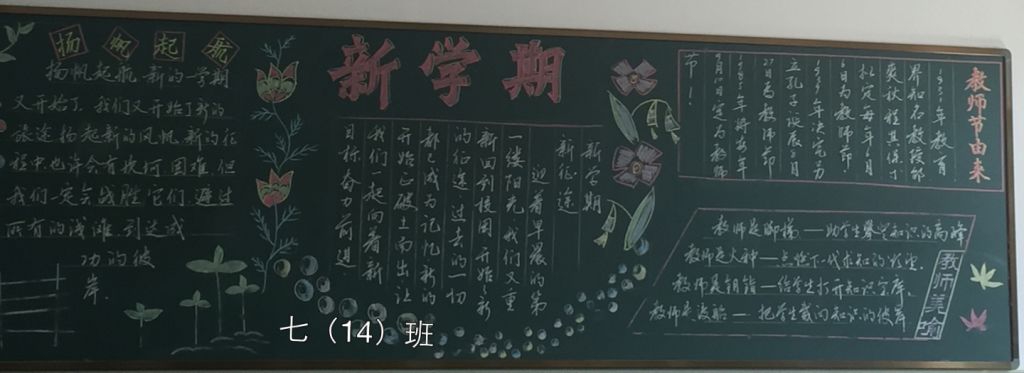 扬帆起航
扬帆起航 新的一学期
又开始了 我们又开始了新的
征途扬起新的风帆 新的征
程中也许会有坎坷 困难 但
我们一定会战胜它们 避过
所有的浅滩 到达成
功的彼
岸。
新学期
新学期
新征途
迎着早晨的第
一缕阳光 我们又重
新回到校园 开始了新
的征途 过去的一切
都已成为记忆 新的
开始正破土而出 让
我们一起向着新
目标奋力前进
教师节由来
界知名教授邰
爽秋 程其保
拟定每年6月
6日为教师节
立孔子诞辰8月
27日为教师节
1985年将每年
9月10日定为教师
节！
教师美喻
教师是脚梯——助学生攀登知识的高峰
教师是火种——点燃了一代求知的
教师是钥匙——给学生打开知识宝库
教师是渡船——把学生载向知识的彼岸
七（14）班